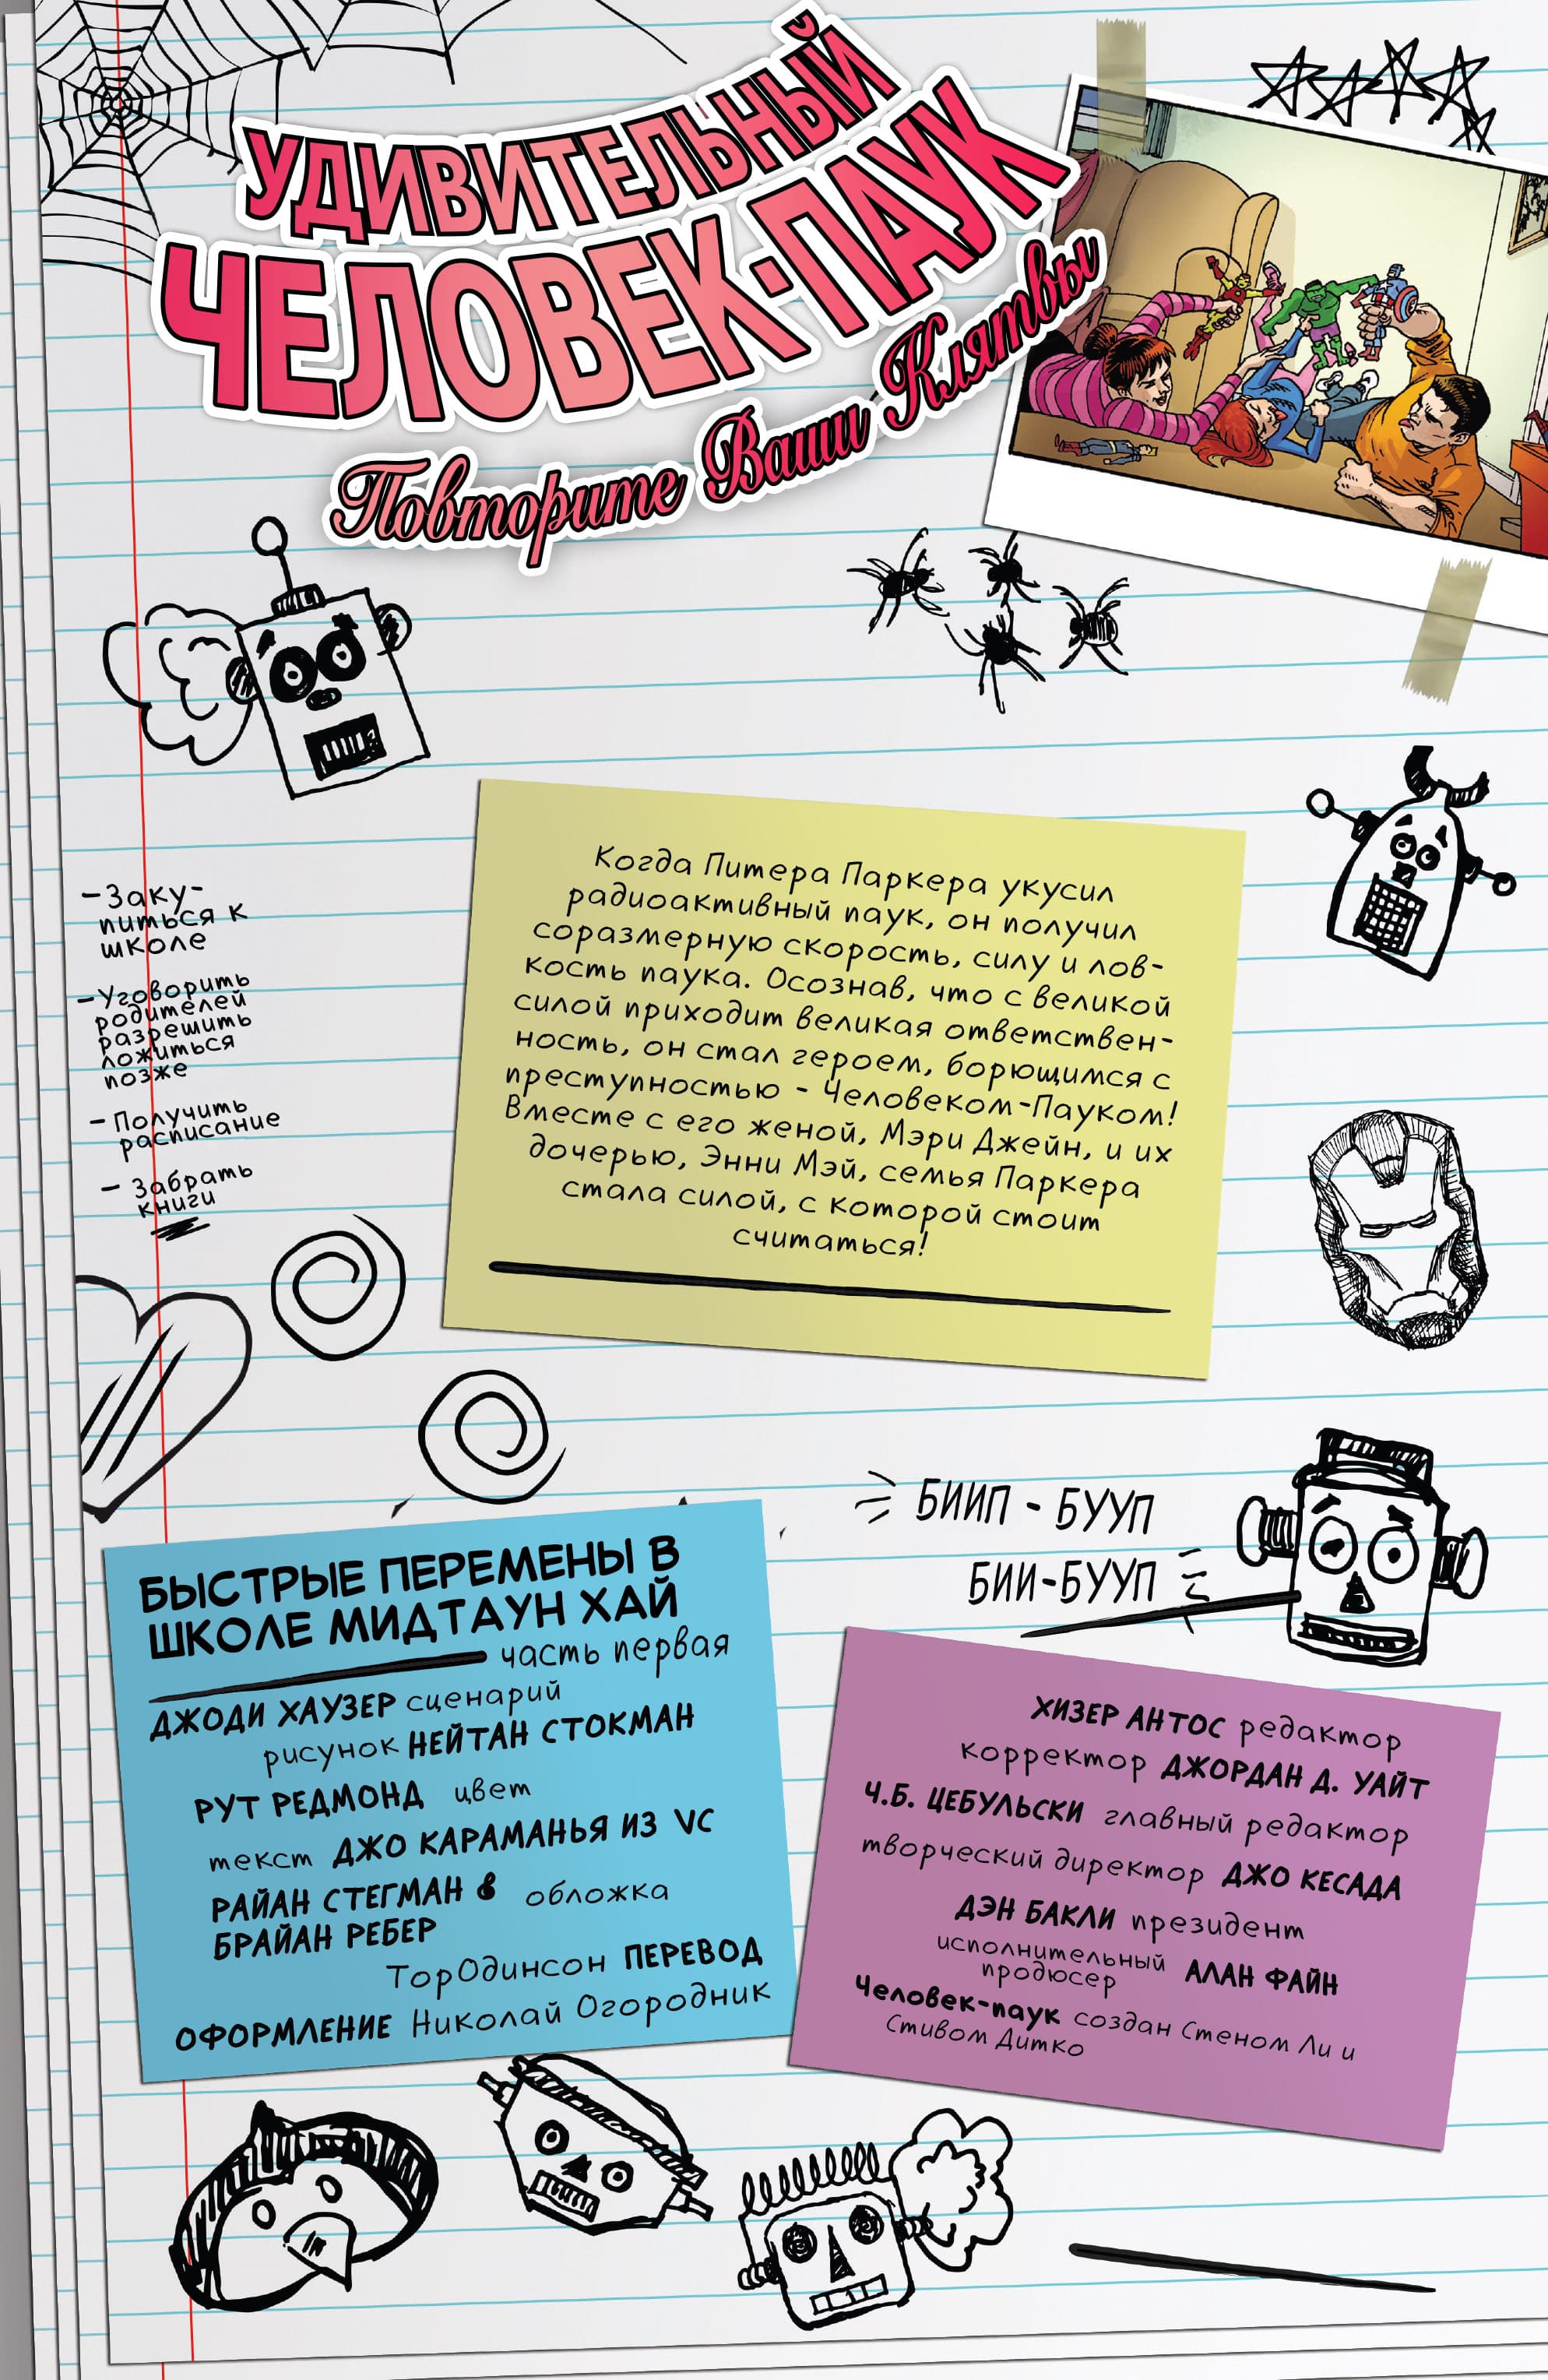 УДИВИТЕЛЬНЫЙ
ЧЕЛОВЕК-ПАУК
Повторите Ваши Клятвы
Когда Питера Паркера укусил
радиоактивный паук, он получил
соразмерную скорость, силу и лов-
кость паука. Осознав, что с великой
силой приходит великая ответствен-
ность, он стал героем, борющимся с
преступностью - Человеком-Пауком!
Вместе с его женой, Мэри Джейн, и их
дочерью, Энни Мэй, семья Паркера
стала силой, с которой стоит
считаться!
-Заку-
питься к
школе
-Уговорить
родителей
разрешить
ложиться
позже
- Получить
расписание
- Забрать
книги
БИИП - БУУП
БИИ-БУУП
БЫСТРЫЕ ПЕРЕМЕНЫ В
ШКОЛЕ МИДТАУН ХАЙ
часть первая
ДЖОДИ ХАУЗЕР сценарий
рисунок НЕЙТАН СТОКМАН
РУТ РЕДМОНД цвет
текст ДЖО КАРАМАНЬЯ ИЗ VC
РАЙАН СТЕГМАН в обложка
БРАЙАН РЕБЕР
ТорОдинсон ПЕРЕВОД
ОФОРМЛЕНИЕ Николай Огородник
ХИЗЕР АНТОС редактор
корректор ДЖОРДАН Д. УАЙТ
Ч.Б. ЦЕБУЛЬСКИ главный редактор
творческий директор ДЖО КЕСАДА
ДЭН БАКЛИ президент
исполнительный
продюсер АЛАН ФАЙН
Человек-паук создан Стеном Ли и
Стивом Дитко